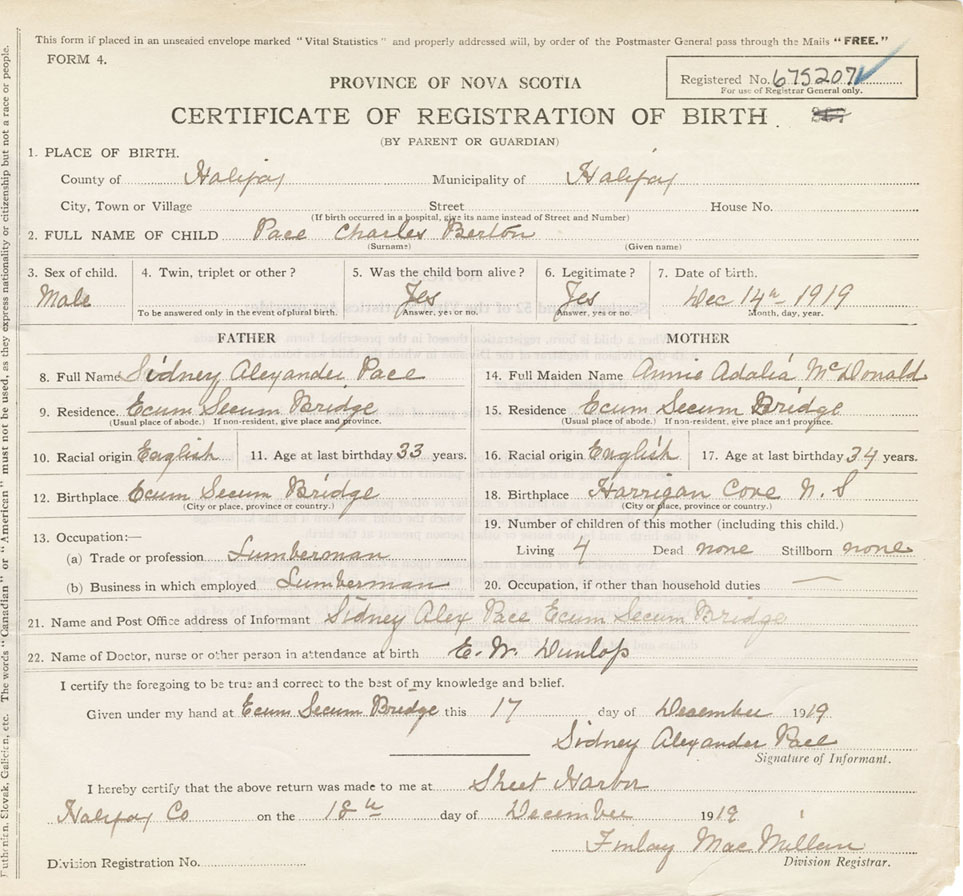 This form if placed in an unsealed envelope marked "Vital Statistics" and properly addressed will, by order of the Postmaster General pass through the Mails "FREE."
FORM 4.
Registered No. 675207
For use of Registrar General only.
PROVINCE OF NOVA SCOTIA
CERTIFICATE OF REGISTRATION OF BIRTH.
(BY PARENT OR GUARDIAN)
1. PLACE OF BIRTH.
County of Halifax Municipality of Halifax
City, Town or Village Street House No.
(If birth occurred in a hospital, give its name instead of Street and Number)
2. FULL NAME OF CHILD Pace Charles Berton
(Surname) (Given name)
3. Sex of child. 4. Twin, triplet or other? 5. Was the child born alive? 6. Legitimate? 7. Date of birth.
Male Yes Yes Dec 14th 1919
To be answered only in the event of plural birth. Answer, yes or no. Answer, yes or no. Month, day, year.
FATHER MOTHER
8. Full Name Sidney Alexander Pace 14. Full Maiden Name Annie Adalia McDonald
9. Residence Ecum Secum Bridge 15. Residence Ecum Secum Bridge
(Usual place of abode.) If non-resident, give place and province. (Usual place of abode.) If non-resident, give place and province.
10. Racial origin English 11. Age at last birthday 33 years. 16. Racial origin English 17. Age at last birthday 34 years.
12. Birthplace Ecum Secum Bridge 18. Birthplace Harrigan Cove N. S
(City or place, province or country.) (City or place, province or country.)
13. Occupation:— 19. Number of children of this mother (including this child.)
(a) Trade or profession Lumberman Living 4 Dead none Stillborn none
(b) Business in which employed Lumberman 20. Occupation, if other than household duties —
21. Name and Post Office address of Informant Sidney Alex Pace Ecum Secum Bridge
22. Name of Doctor, nurse or other person in attendance at birth E. W. Dunlop
I certify the foregoing to be true and correct to the best of my knowledge and belief.
Given under my hand at Ecum Secum Bridge this 17 day of December 1919
Sidney Alexander Pace
Signature of Informant.
I hereby certify that the above return was made to me at Sheet Harbor
Halifax Co on the 18th day of December 1919
Finlay MacMillan
Division Registration No. Division Registrar.
Ruthenian, Slovak, Galician, etc. The words "Canadian" or "American" must not be used, as they express nationality or citizenship but not a race or people.